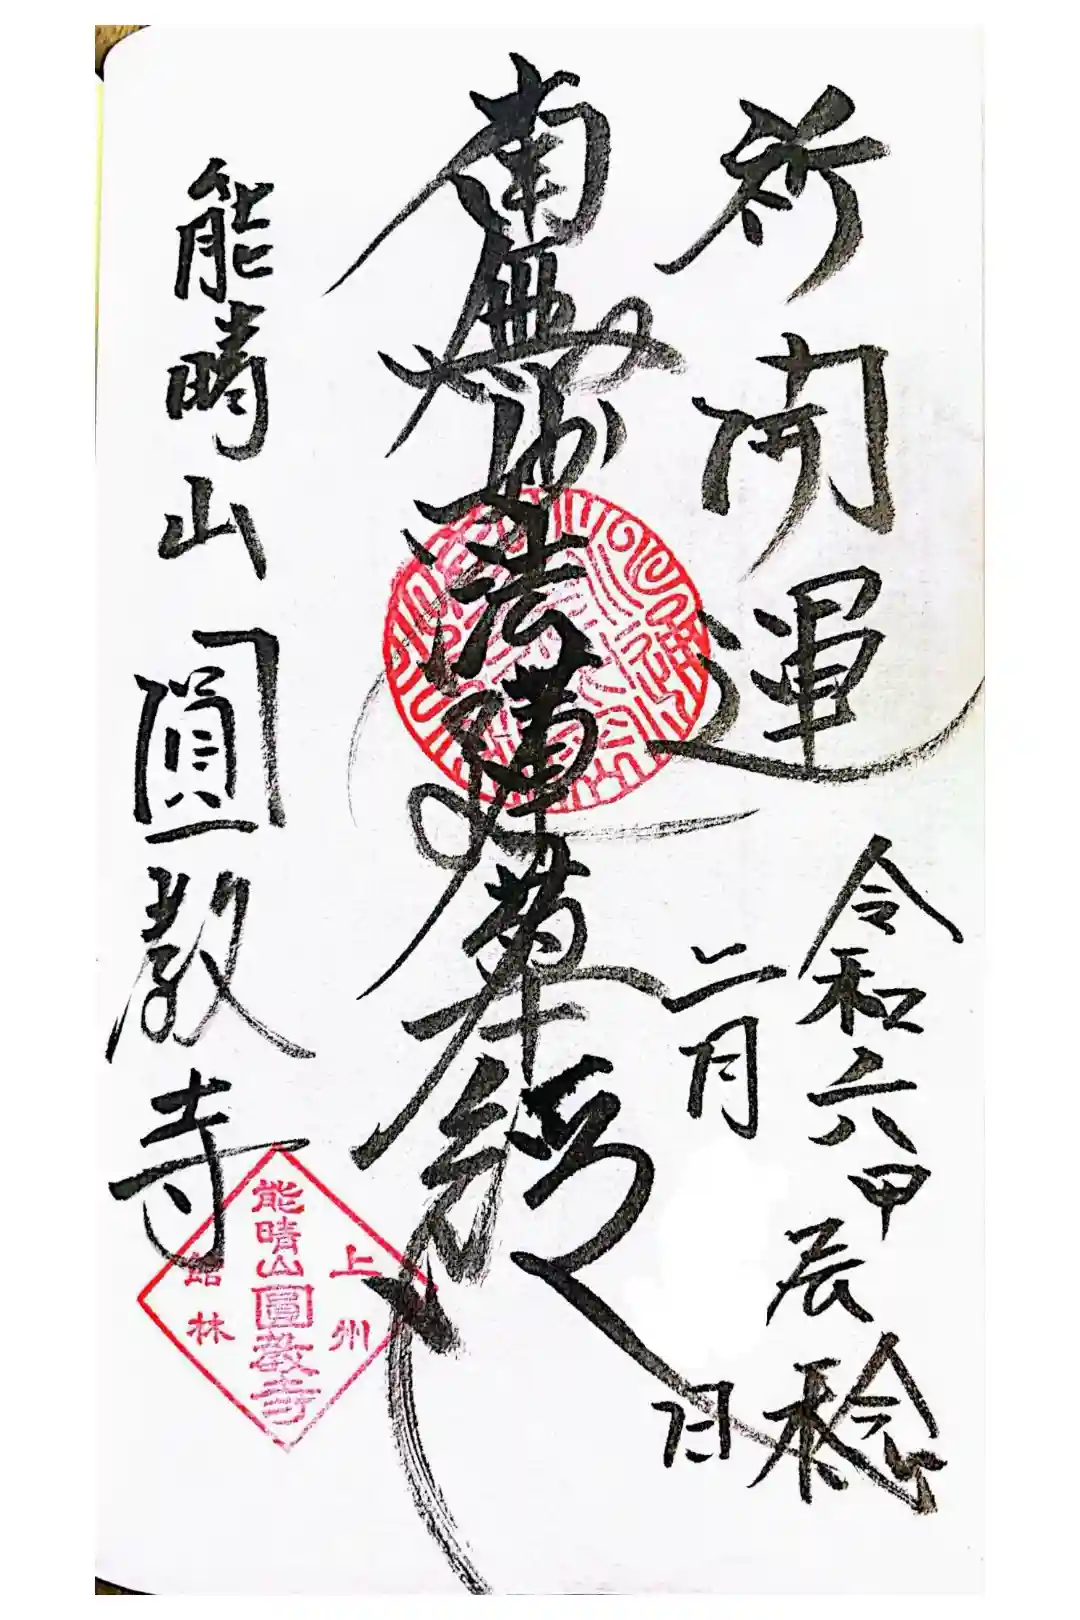 祈開運
令和六甲辰稔
二月 日
南無妙法蓮華経
能晴山圓教寺
上州
能晴山圓教寺
館林